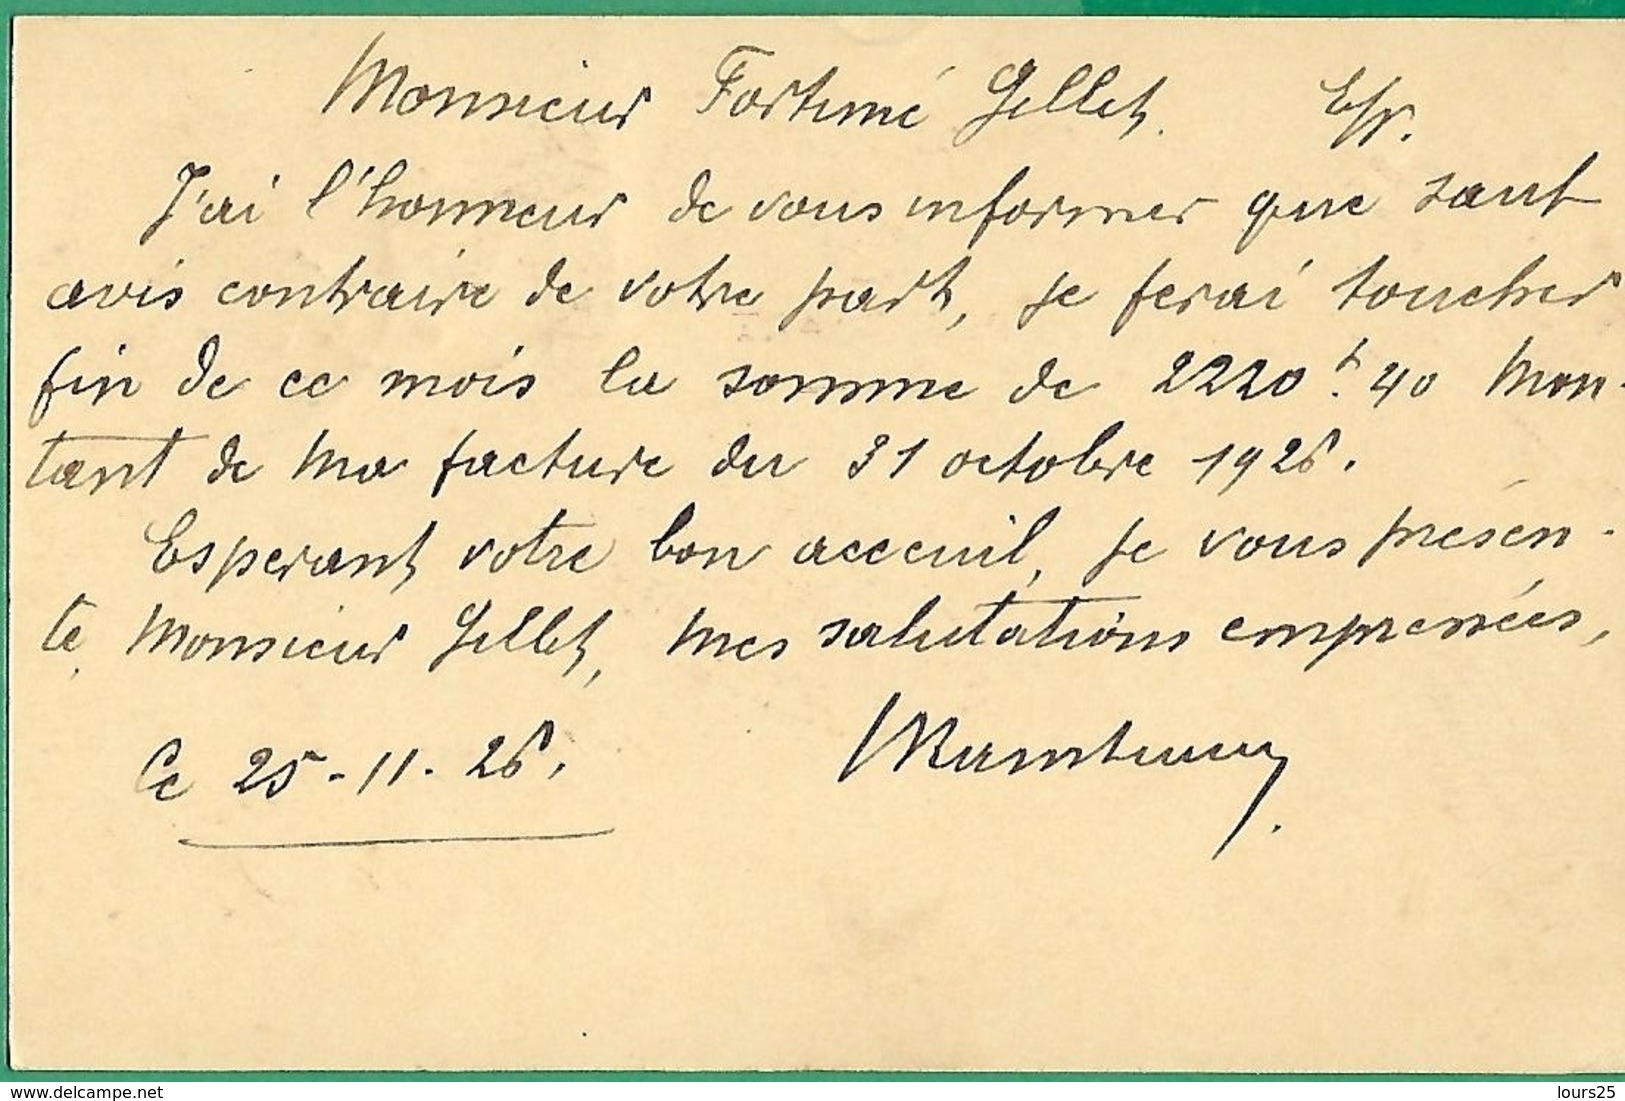 Monsieur Fortuné Gillet. E/V.
J'ai l'honneur de vous informer que sauf
avis contraire de votre part, je ferai toucher
fin de ce mois la somme de 2220 f. 40 Mon-
tant de Ma facture du 31 octobre 1926.
Esperant votre bon acceuil, je vous présen-
te, Monsieur Gillet, Mes salutations empressées,
Ce 25-11-26.
www.delcampe.net
lours25